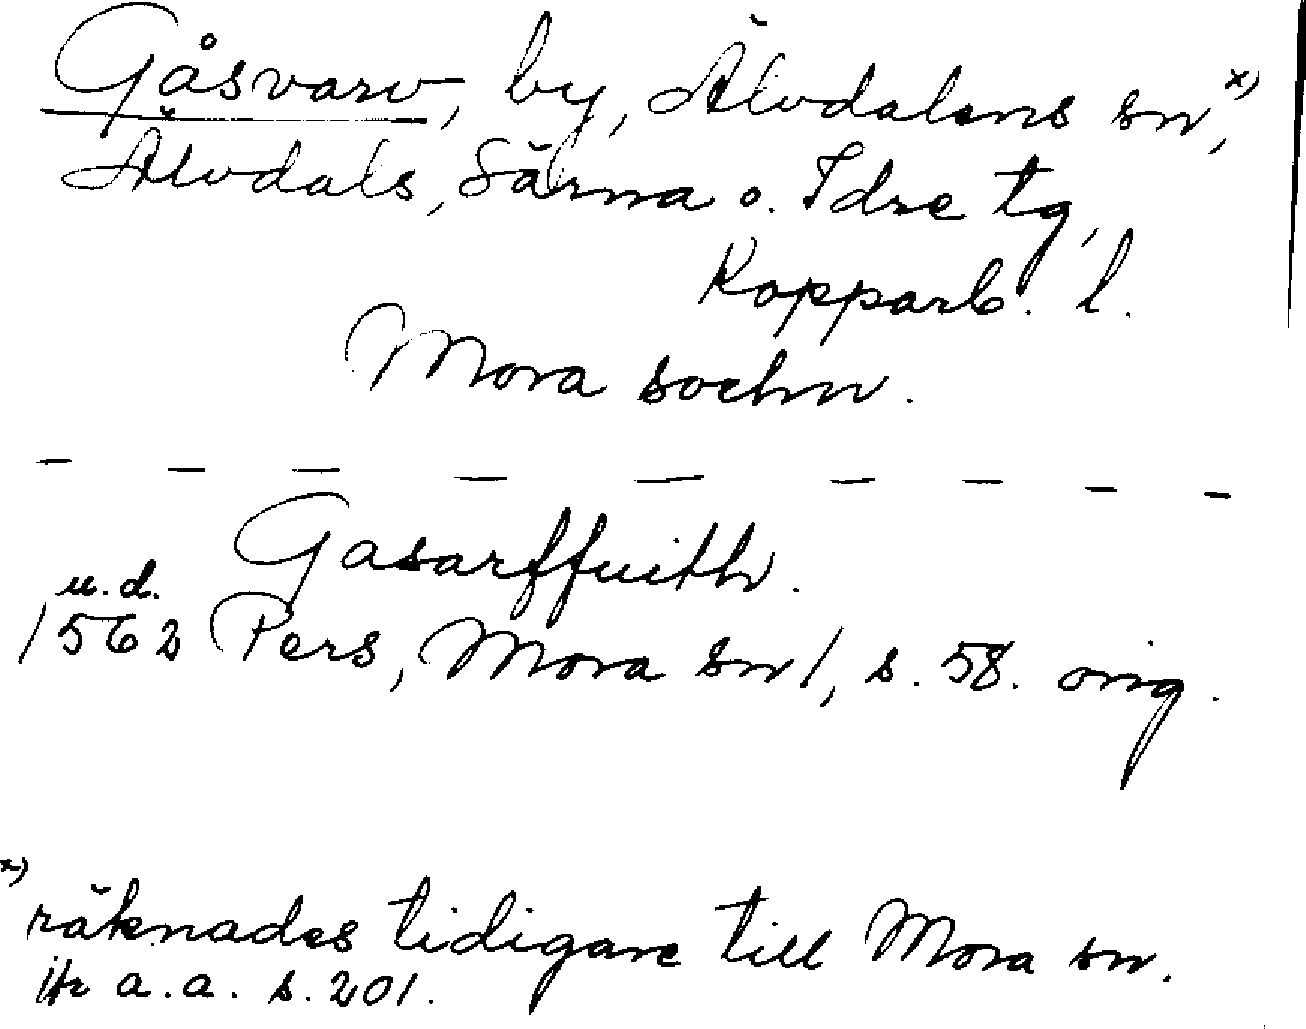 Gåsvarv, by, Älvdalens sn,x)
Älvdals, Särna o. Idre tg,
Kopparb. l.
Mora sochn.
— — — — — — — — —
Gasarffuith.
u.d.
1562 Pers, Mora sn1, s. 58. orig.
x)
räknades tidigare till Mora sn.
jfr a.a. s. 201.